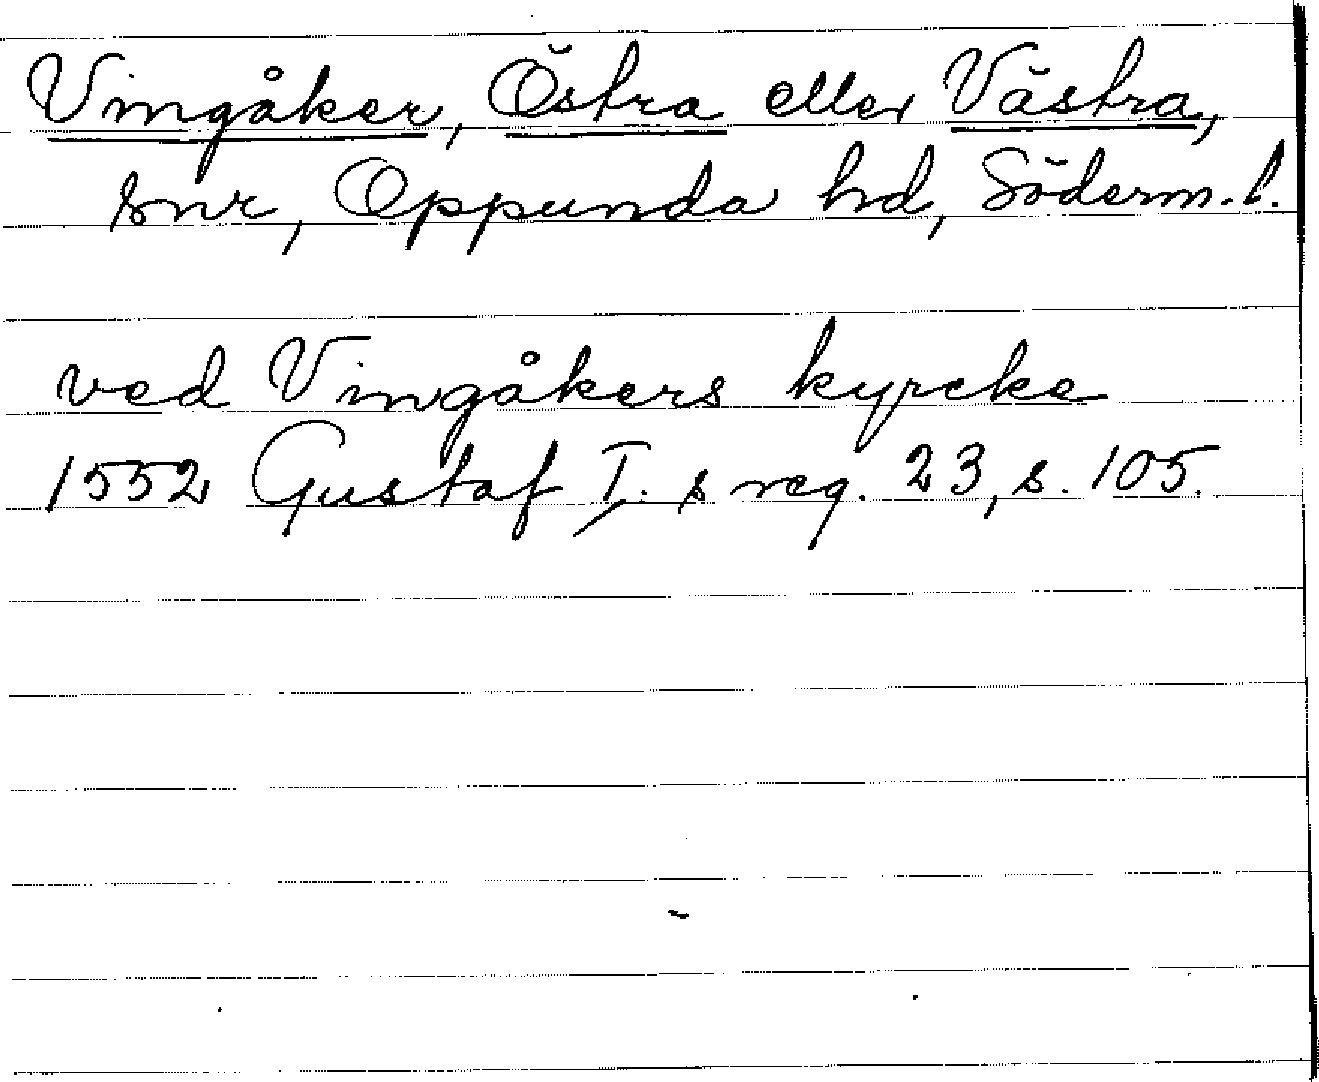 Vingåker, Östra eller Västra,
snr, Oppunda hd, Söderm. l.
ved Vingåkers kyrcke
1552 Gustaf I. s reg. 23, s. 105.